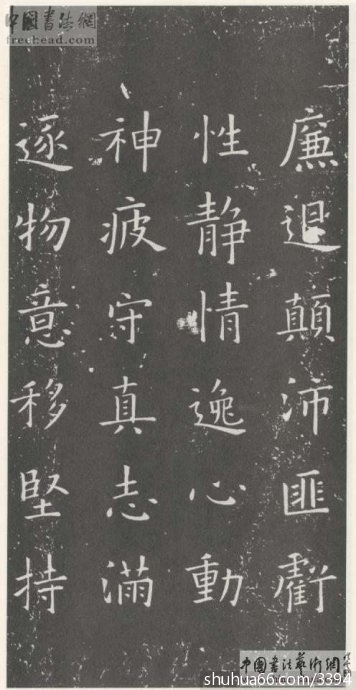 中國書法網
freehead.com
廉退顛沛匪虧
性静情逸心動
神疲守真志滿
逐物意移堅持
中國書法藝術網
shuhua66.com/3394